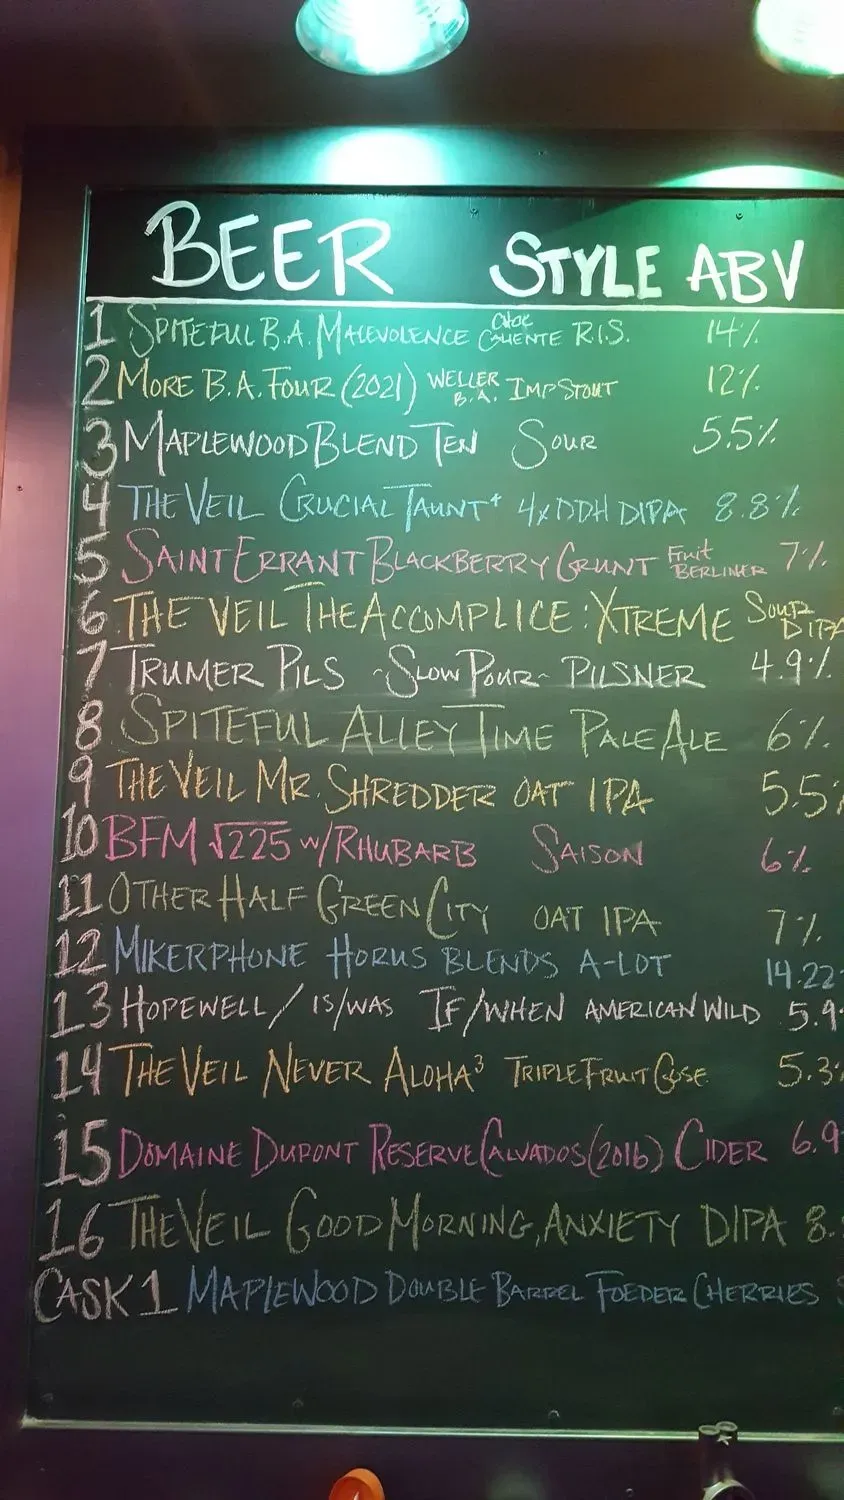 BEER STYLE ABV
1 SPITEFUL B.A. MALEVOLENCE CHOC CALIENTE R.I.S. 14%
2 MORE B.A. FOUR (2021) WELLER B.A. IMP STOUT 12%
3 MAPLEWOOD BLEND TEN SOUR 5.5%
4 THE VEIL CRUCIAL TAUNT⁴ 4xDDH DIPA 8.8%
5 SAINT ERRANT BLACKBERRY GRUNT Fruit BERLINER 7%
6 THE VEIL THE ACCOMPLICE: XTREME SOUR DIPA
7 TRUMER PILS ~SLOW POUR~ PILSNER 4.9%
8 SPITEFUL ALLEY TIME PALE ALE 6%
9 THE VEIL MR. SHREDDER OAT IPA 5.5%
10 BFM √225 w/RHUBARB SAISON 6%
11 OTHER HALF GREEN CITY OAT IPA 7%
12 MIKERPHONE HORUS BLENDS A-LOT 14.22
13 HOPEWELL/IS/WAS IF/WHEN AMERICAN WILD 5.9
14 THE VEIL NEVER ALOHA³ TRIPLE FRUIT GOSE 5.3%
15 DOMAINE DUPONT RESERVE CALVADOS (2016) CIDER 6.9
16 THE VEIL GOOD MORNING, ANXIETY DIPA 8.
CASK 1 MAPLEWOOD DOUBLE BARREL FOEDER CHERRIES